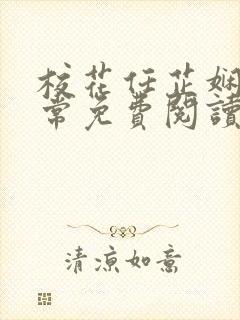 校花任芷娴
常免費閱讀
清涼如意